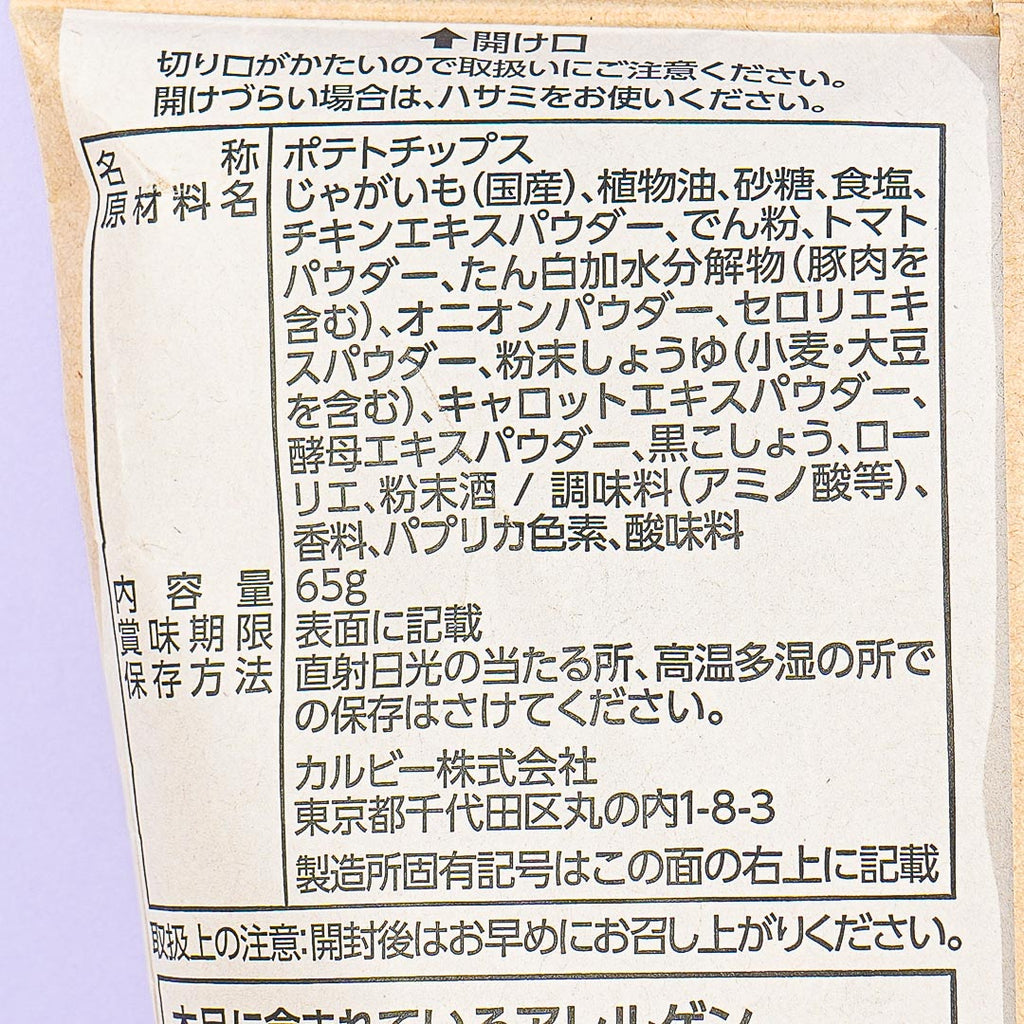 ⬆開け口
切り口がかたいので取扱いにご注意ください。
開けづらい場合は、ハサミをお使いください。
名称 ポテトチップス
原材料名 じゃがいも(国産)、植物油、砂糖、食塩、
チキンエキスパウダー、でん粉、トマト
パウダー、たん白加水分解物(豚肉を
含む)、オニオンパウダー、セロリエキ
スパウダー、粉末しょうゆ(小麦・大豆
を含む)、キャロットエキスパウダー、
酵母エキスパウダー、黒こしょう、ロー
リエ、粉末酒 / 調味料(アミノ酸等)、
香料、パプリカ色素、酸味料
内容量 65g
賞味期限 表面に記載
保存方法 直射日光の当たる所、高温多湿の所で
の保存はさけてください。
カルビー株式会社
東京都千代田区丸の内1-8-3
製造所固有記号はこの面の右上に記載
取扱上の注意:開封後はお早めにお召し上がりください。
本品に含まれているアレルゲン